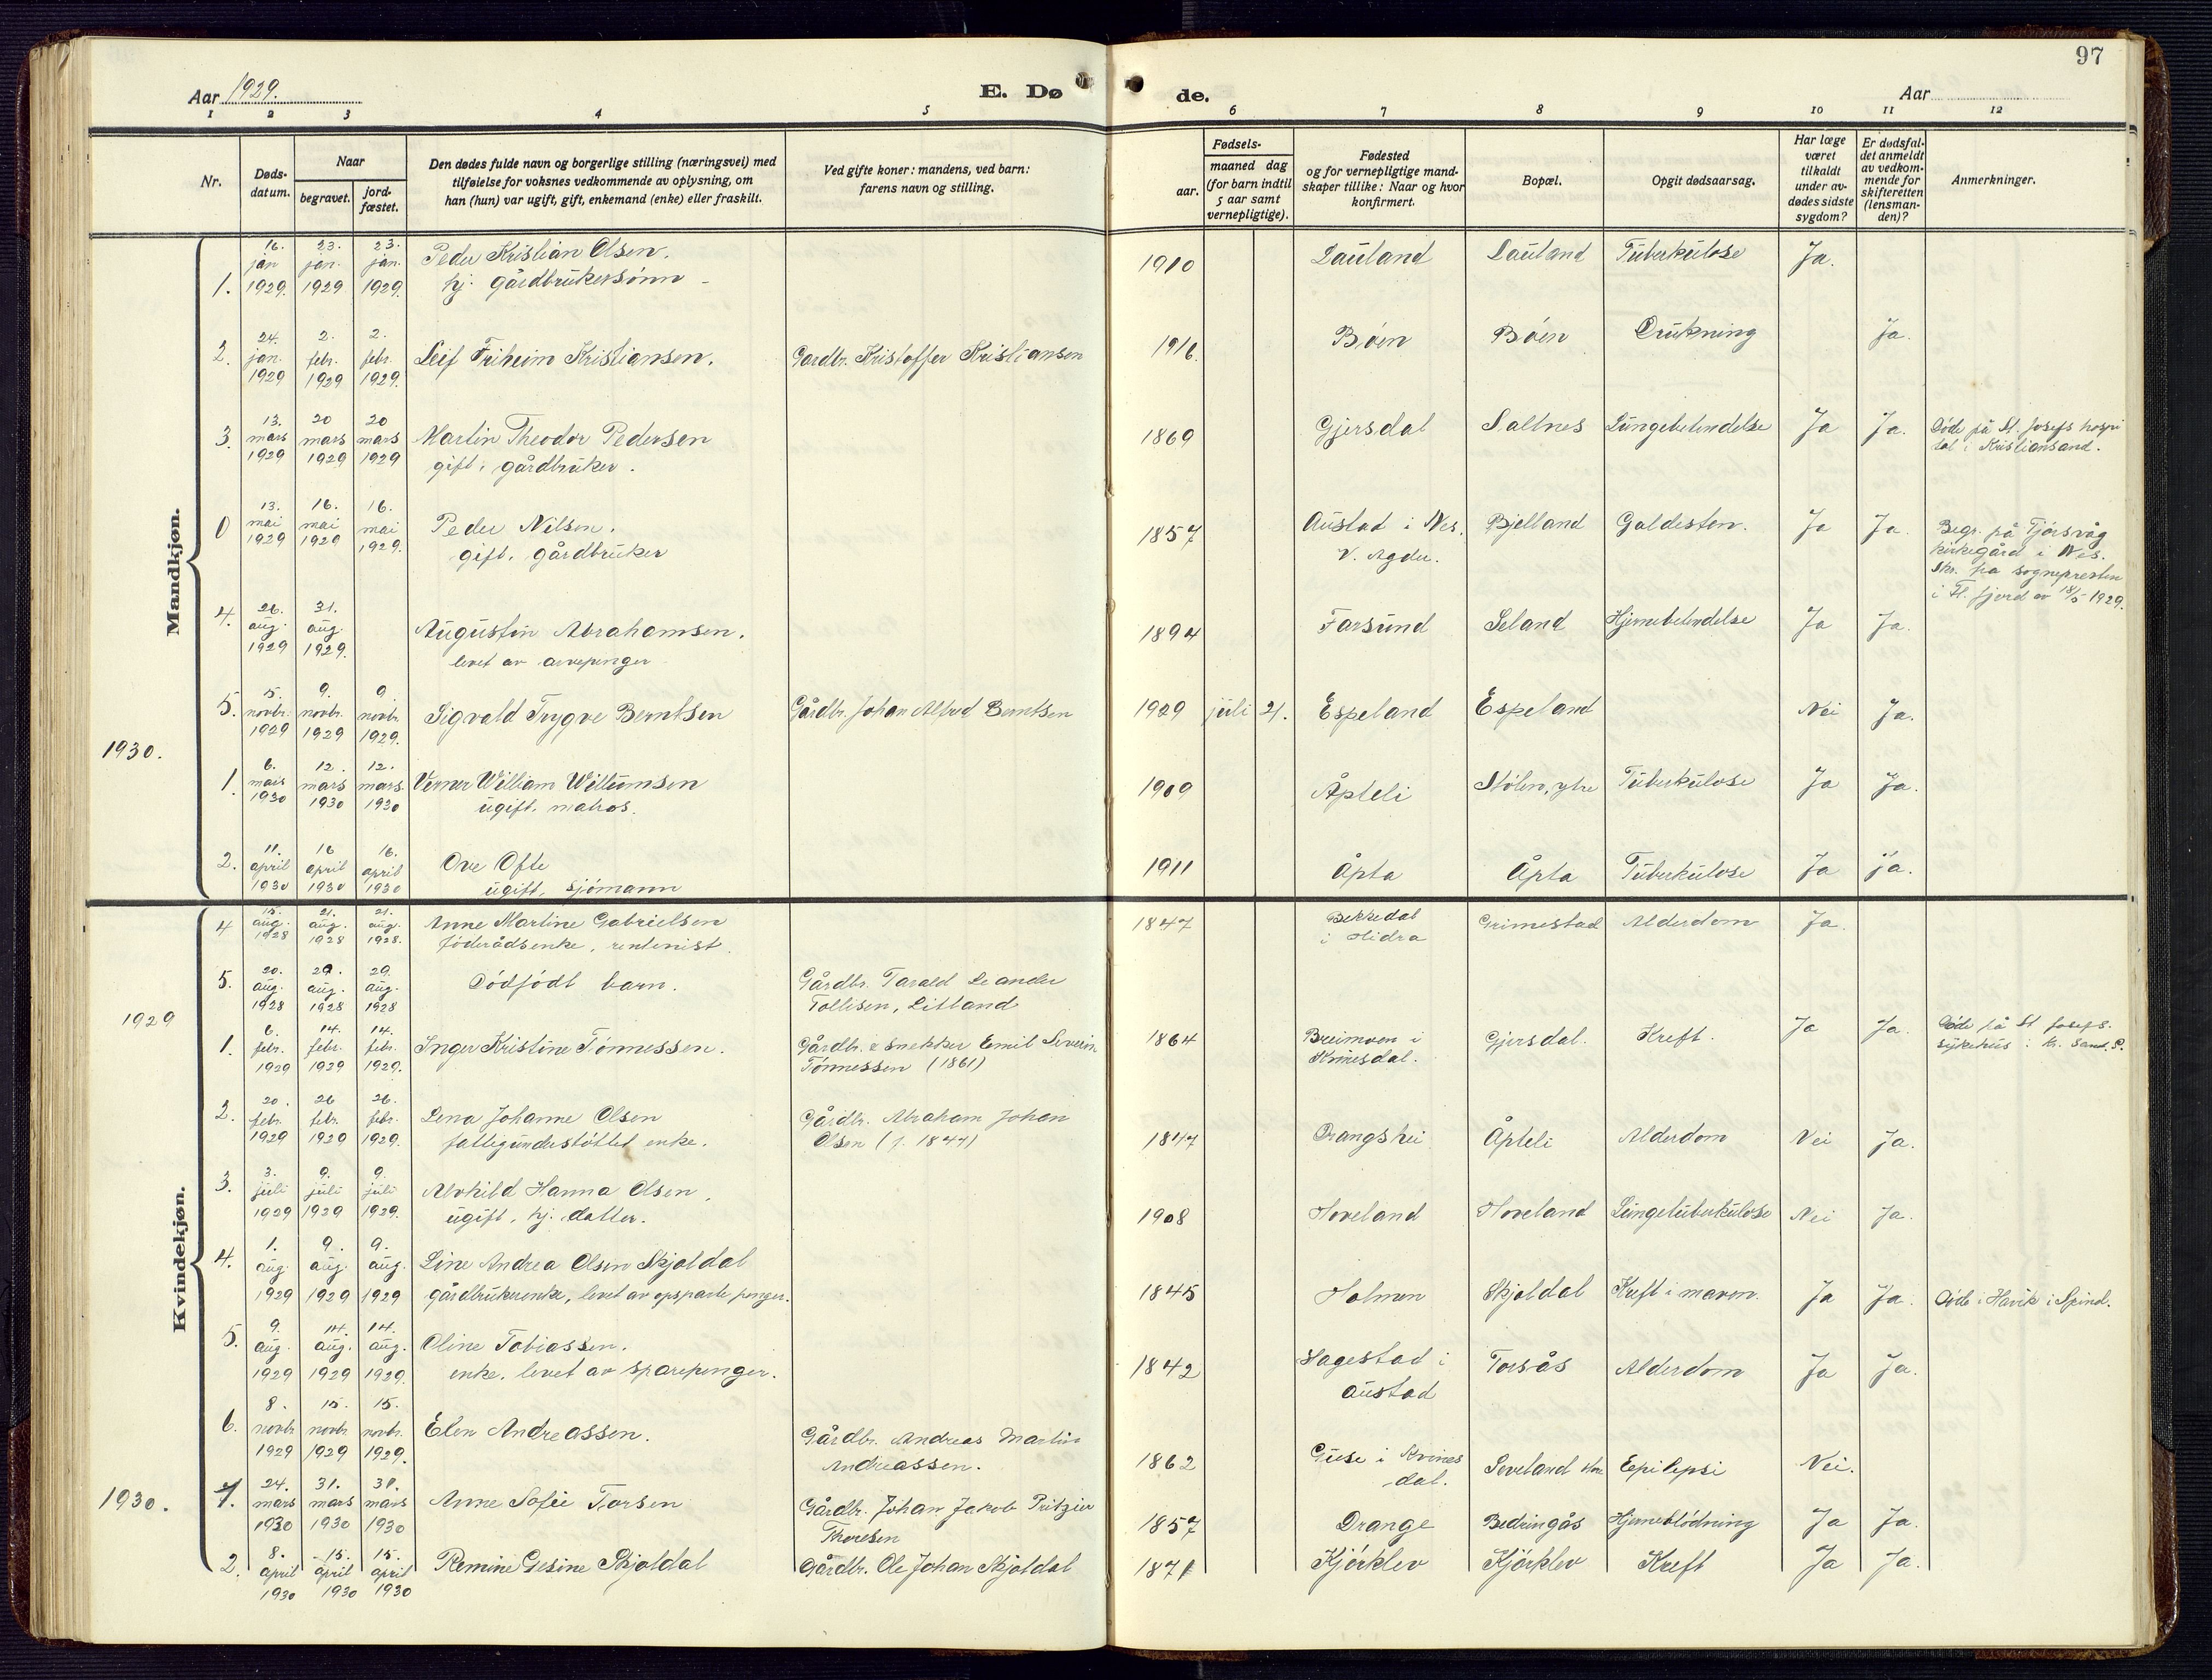 97
Aar 1929.
E. Dø
de.
Aar
1 2 3 4 5 6 7 8 9 10 11 12
Nr.
Døds-
datum.
Naar
begravet.
jord-
fæstet.
Den dødes fulde navn og borgerlige stilling (næringsvei) med
tilføielse for voksnes vedkommende av oplysning, om
han (hun) var ugift, gift, enkemand (enke) eller fraskilt.
Ved gifte koner: mandens, ved barn:
farens navn og stilling.
Fødsels-
aar.
maaned dag
(for barn indtil
5 aar samt
vernepligtige).
Fødested
og for vernepligtige mand-
skaper tillike: Naar og hvor
konfirmert.
Bopæl.
Opgit dødsaarsag.
Har læge
været
tilkaldt
under av-
dødes sidste
sygdom?
Er dødsfal-
det anmeldt
av vedkom-
mende for
skifteretten
(lensman-
den)?
Anmerkninger.
Mandkjøn.
1. 16. jan 1929. 23. jan. 1929 23. jan. 1929. Peder Kristian Olsen. 1910 Lauland Lauland Tuberkulose Ja.
hj. gårdbrukersønn
2. 24. jan. 1929 2. febr. 1929 2. febr. 1929. Leif Friheim Kristiansen. Gårdbr. Kristoffer Kristiansen 1916. Bøen Bøen Drukning Ja.
3. 13. mars 1929 20 mars 1929 20 mars 1929 Martin Theodor Pedersen 1869 Gjersdal Saltnes Lungebetendelse Ja Ja. Døde på St. Josefs hospi
gift, gårdbruker. tal i Kristiansand.
0 13. mai 1929 16. mai 1929 16. mai 1929. Peder Nilsen. 1857 Austad i Nes. Bjelland Galdesten. Ja Ja. Begr. på Tjørsvåg
gift, gårdbruker V. Agder. kirkegård i Nes.
Skr. fra sognepresten
i Fl. fjord av 18/5 1929.
4. 26. aug. 1929 31. aug. 1929. Augustin Abrahamsen. 1894 Farsund Seland Hjernebetendelse Ja Ja.
levet av arvepenger
5. 5. novbr. 1929 9. novbr. 1929 9. novbr. 1929. Sigvald Trygve Berntsen Gårdbr. Johan Alfred Berntsen 1929 juli 21. Espeland Espeland Nei Ja.
1930.
1. 6. mars 1930 12. mars 1930 12. mars 1930 Verner William Williumsen 1909 Åpteli Stølen, ytre Tuberkulose Ja Ja.
ugift. matros.
2. 11. april 1930 16 april 1930 16. april 1930 Ove Ofte 1911 Åpta Åpta Tuberkulose Ja ja.
ugift, sjømann
Kvindekjøn.
4 15. aug. 1928 21. aug. 1928 21. aug. 1928. Anne Martine Gabrielsen 1847 Bekkedal Grimestad Alderdom Ja.
føderådsenke, rentenist. i Hidra
5. 20. aug. 1928 29. aug. 1928 29. aug. 1928 Dødfødt barn. Gårdbr. Tarald Leander
Tollisen, Litland
1929
1. 6. febr. 1929 14. febr. 1929 14. febr. 1929. Inger Kristine Tønnessen. Gårdbr. & snekker Emil Severin 1864 Breimoen i Gjersdal. Kreft. Ja Ja. Døde på St Josefs.
Tønnessen (1861) Kvinesdal. sykehus i Kr. Sand. S.
2. 20. febr. 1929 26 febr. 1929 26. febr. 1929. Lena Johanne Olsen Gårdbr. Abraham Johan 1847 Drangshei Åpteli Alderdom Nei Ja.
fattigunderstøttet enke. Olsen (f. 1847)
3. 3. juli 1929 9. juli 1929 9. juli 1929. Alvhild Hanna Olsen. 1908 Hoveland Hoveland Lungetuberkulose Nei Ja.
ugift, hj. datter.
4. 1. aug. 1929 9. aug. 1929 9. aug. 1929 Line Andrea Olsen Skjoldal 1845 Holmen Skjoldal Kreft i maven. Ja Ja. Døde i Havik i Spind.
gårdbrukerenke, levet av opsparte penger.
5. 9. aug. 1929 14. aug. 1929 14. aug. 1929. Oline Tobiassen. 1842 Hagestad i Torsås Alderdom Ja Ja.
enke. levet av sparepenger. Austad
6. 8. novbr. 1929 15. novbr. 1929 15. novbr. 1929. Elen Andreassen. Gårdbr. Andreas Martin 1862 Guse i Kvines Eepilepsi Nei.
Andreassen. dal.
1930.
1. 24. mars 1930 31. mars 1930 31. mars 1930 Anne Sofie Torsen Gårdbr. Johan Jakob Pritzier 1857 Drange Bedringås Hjerneblødning Ja Ja.
Thoresen
2. 8. april 1930 15. april 1930 15. april 1930 Remine Gesine Skjoldal Gårdbr. Ole Johan Skjoldal 1871 Kjørklev Kjørklev Kreft Ja Ja.